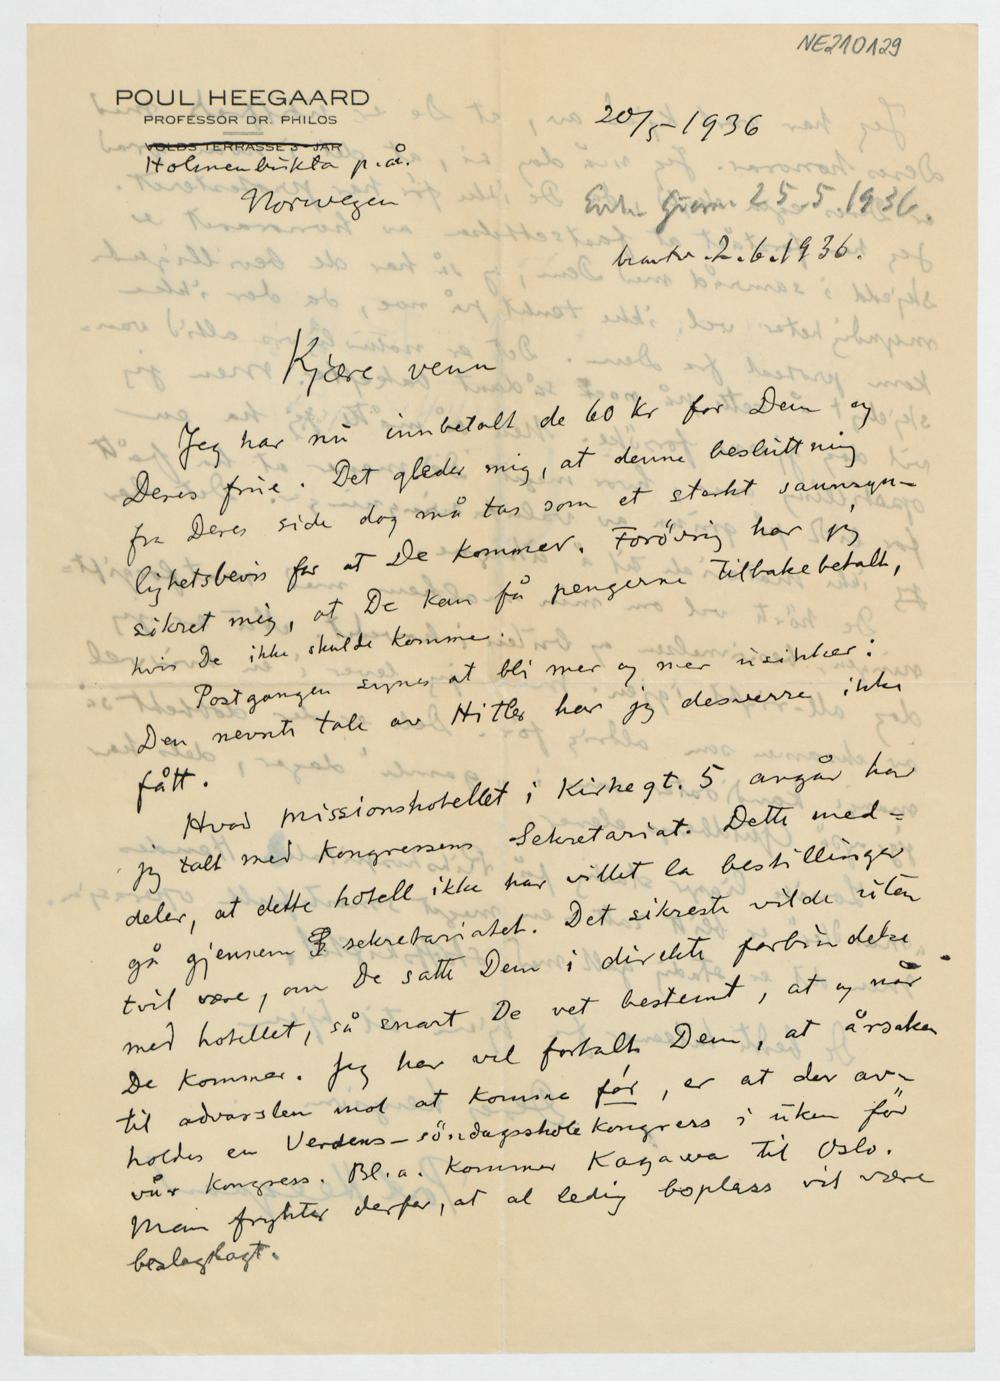 NE210129
POUL HEEGAARD
PROFESSOR DR. PHILOS
VOLDS TERRASSE 3 - JAR
Holmenbukta p.å.
Norwegen
20/5-1936
25.5.1936.
2.6.1936.
Kjære venn
Jeg har nu innbetalt de 60 kr for Dem og
Deres frue. Det gleder mig, at denne beslutning
fra Deres side dog må tas som et sterkt sannsyn-
lighetsbevis for at De kommer. Forövrig har jeg
sikret mig, at De kan få pengerne tilbakebetalt,
hvis De ikke skulde komme.
Postgangen synes at bli mer og mer usikker:
Den nevnte tale av Hitler har jeg desverre ikke
fått.
Hvad missionshotellet i Kirkegt. 5 angår har
jeg talt med Kongressens Sekretariat. Dette med-
deler, at dette hotell ikke har villet la bestillinger
gå gjennem sekretariatet. Det sikreste vilde uten
tvil være, om De satte Dem i direkte forbindelse
med hotellet, så snart De vet bestemt, at og når
De kommer. Jeg har vel fortalt Dem, at årsaken
til advarslen mot at komme før, er at der av-
holdes en Verdens-söndagsskolekongress i uken för
vår kongress. Bl.a. kommer Kagawa til Oslo.
Man frykter derfor, at al ledig boplass vil være
beslaglagt.